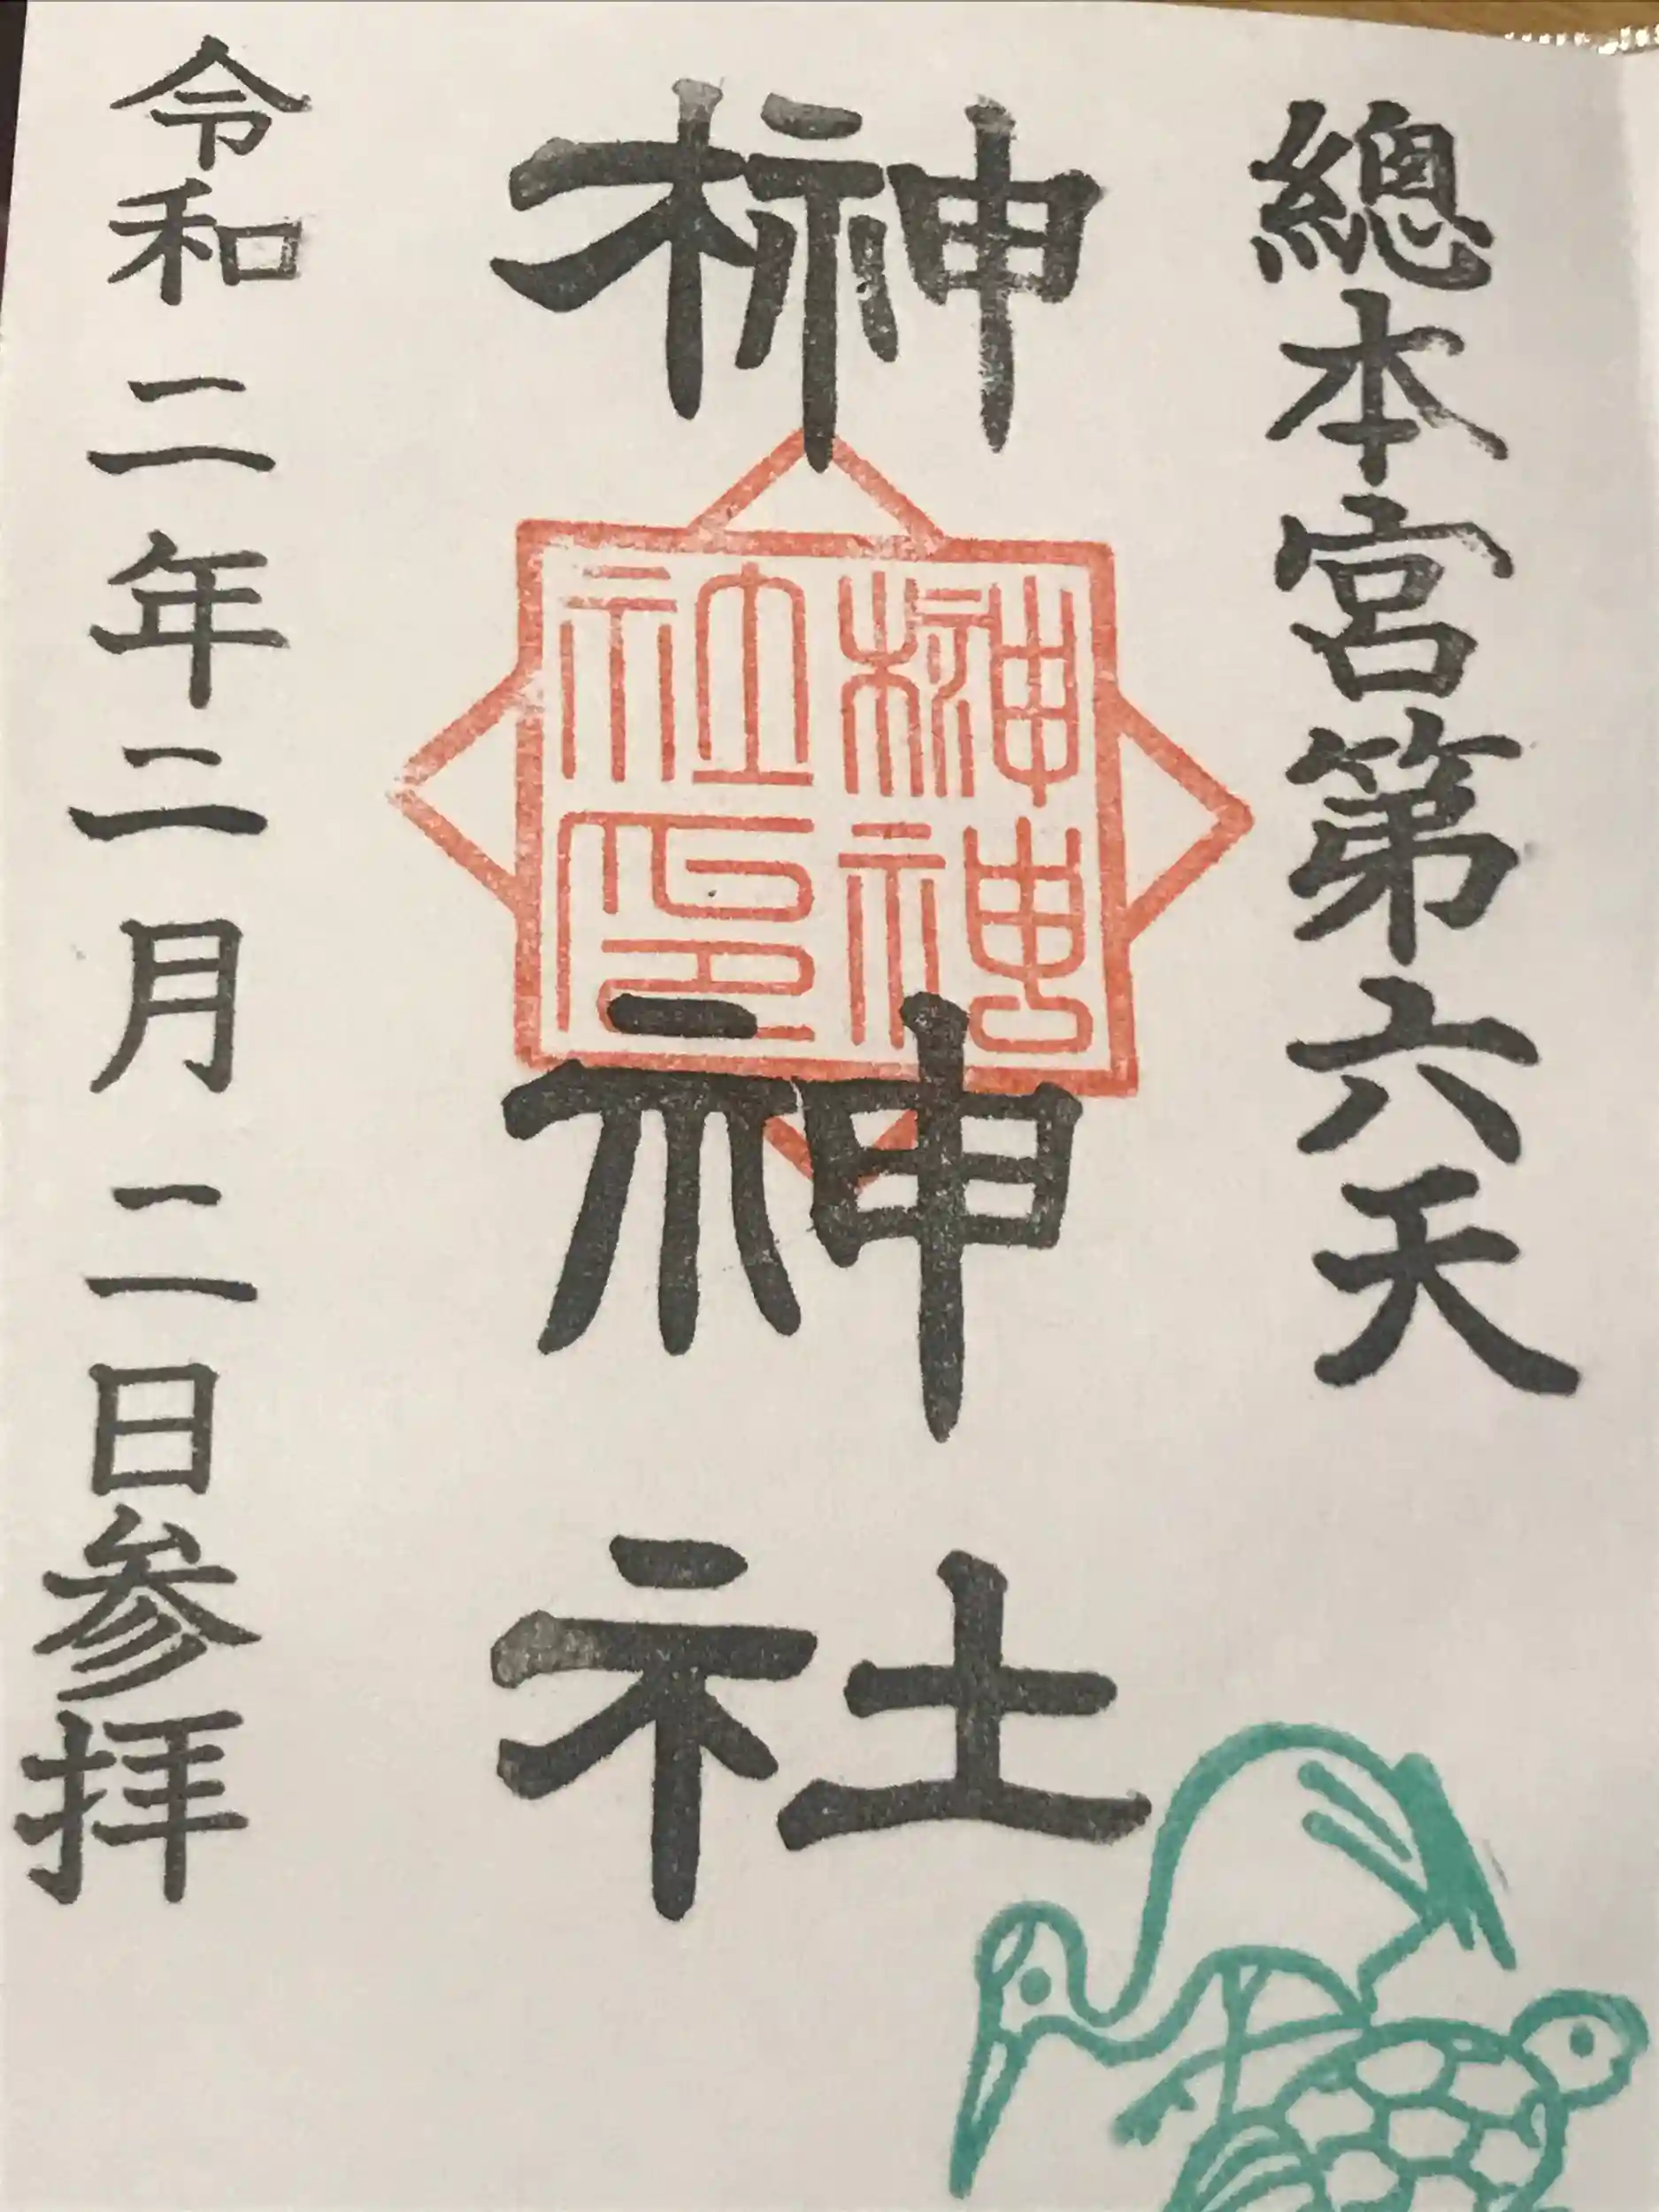 總本宮第六天
榊神社
榊神
社印
令和二年二月二日参拝